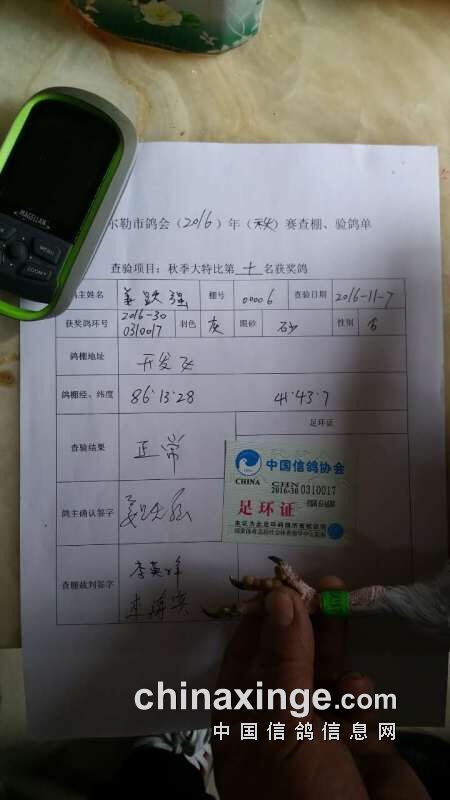 MAGELLAN
MENU
尔勒市鸽会（2016）年（秋）赛查棚、验鸽单
查验项目：秋季大特比第 十 名获奖鸽
鸽主姓名 姜跃强 棚号 00006 查验日期 2016-11-7
获奖鸽环号 2016-30 0310017 羽色 灰 眼砂 砂 性别
鸽棚地址 开发区
鸽棚经、纬度 86°13'28 41°43'7
足环证
查验结果 正常
中国信鸽协会
CHINA CHN
2016-30 0310017
足环证
鸽主确认签字 姜跃强
查棚裁判签字 李英
chinaxinge.com
中国信鸽信息网